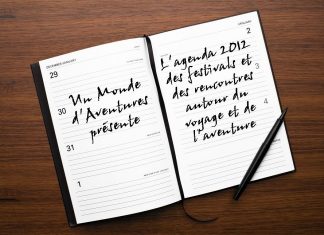 29
30
31
1
Un Monde
d'Aventures
présente
2
3
4
5
L'agenda 2012
des festivals et
des rencontres
autour du
voyage et de
l'aventure